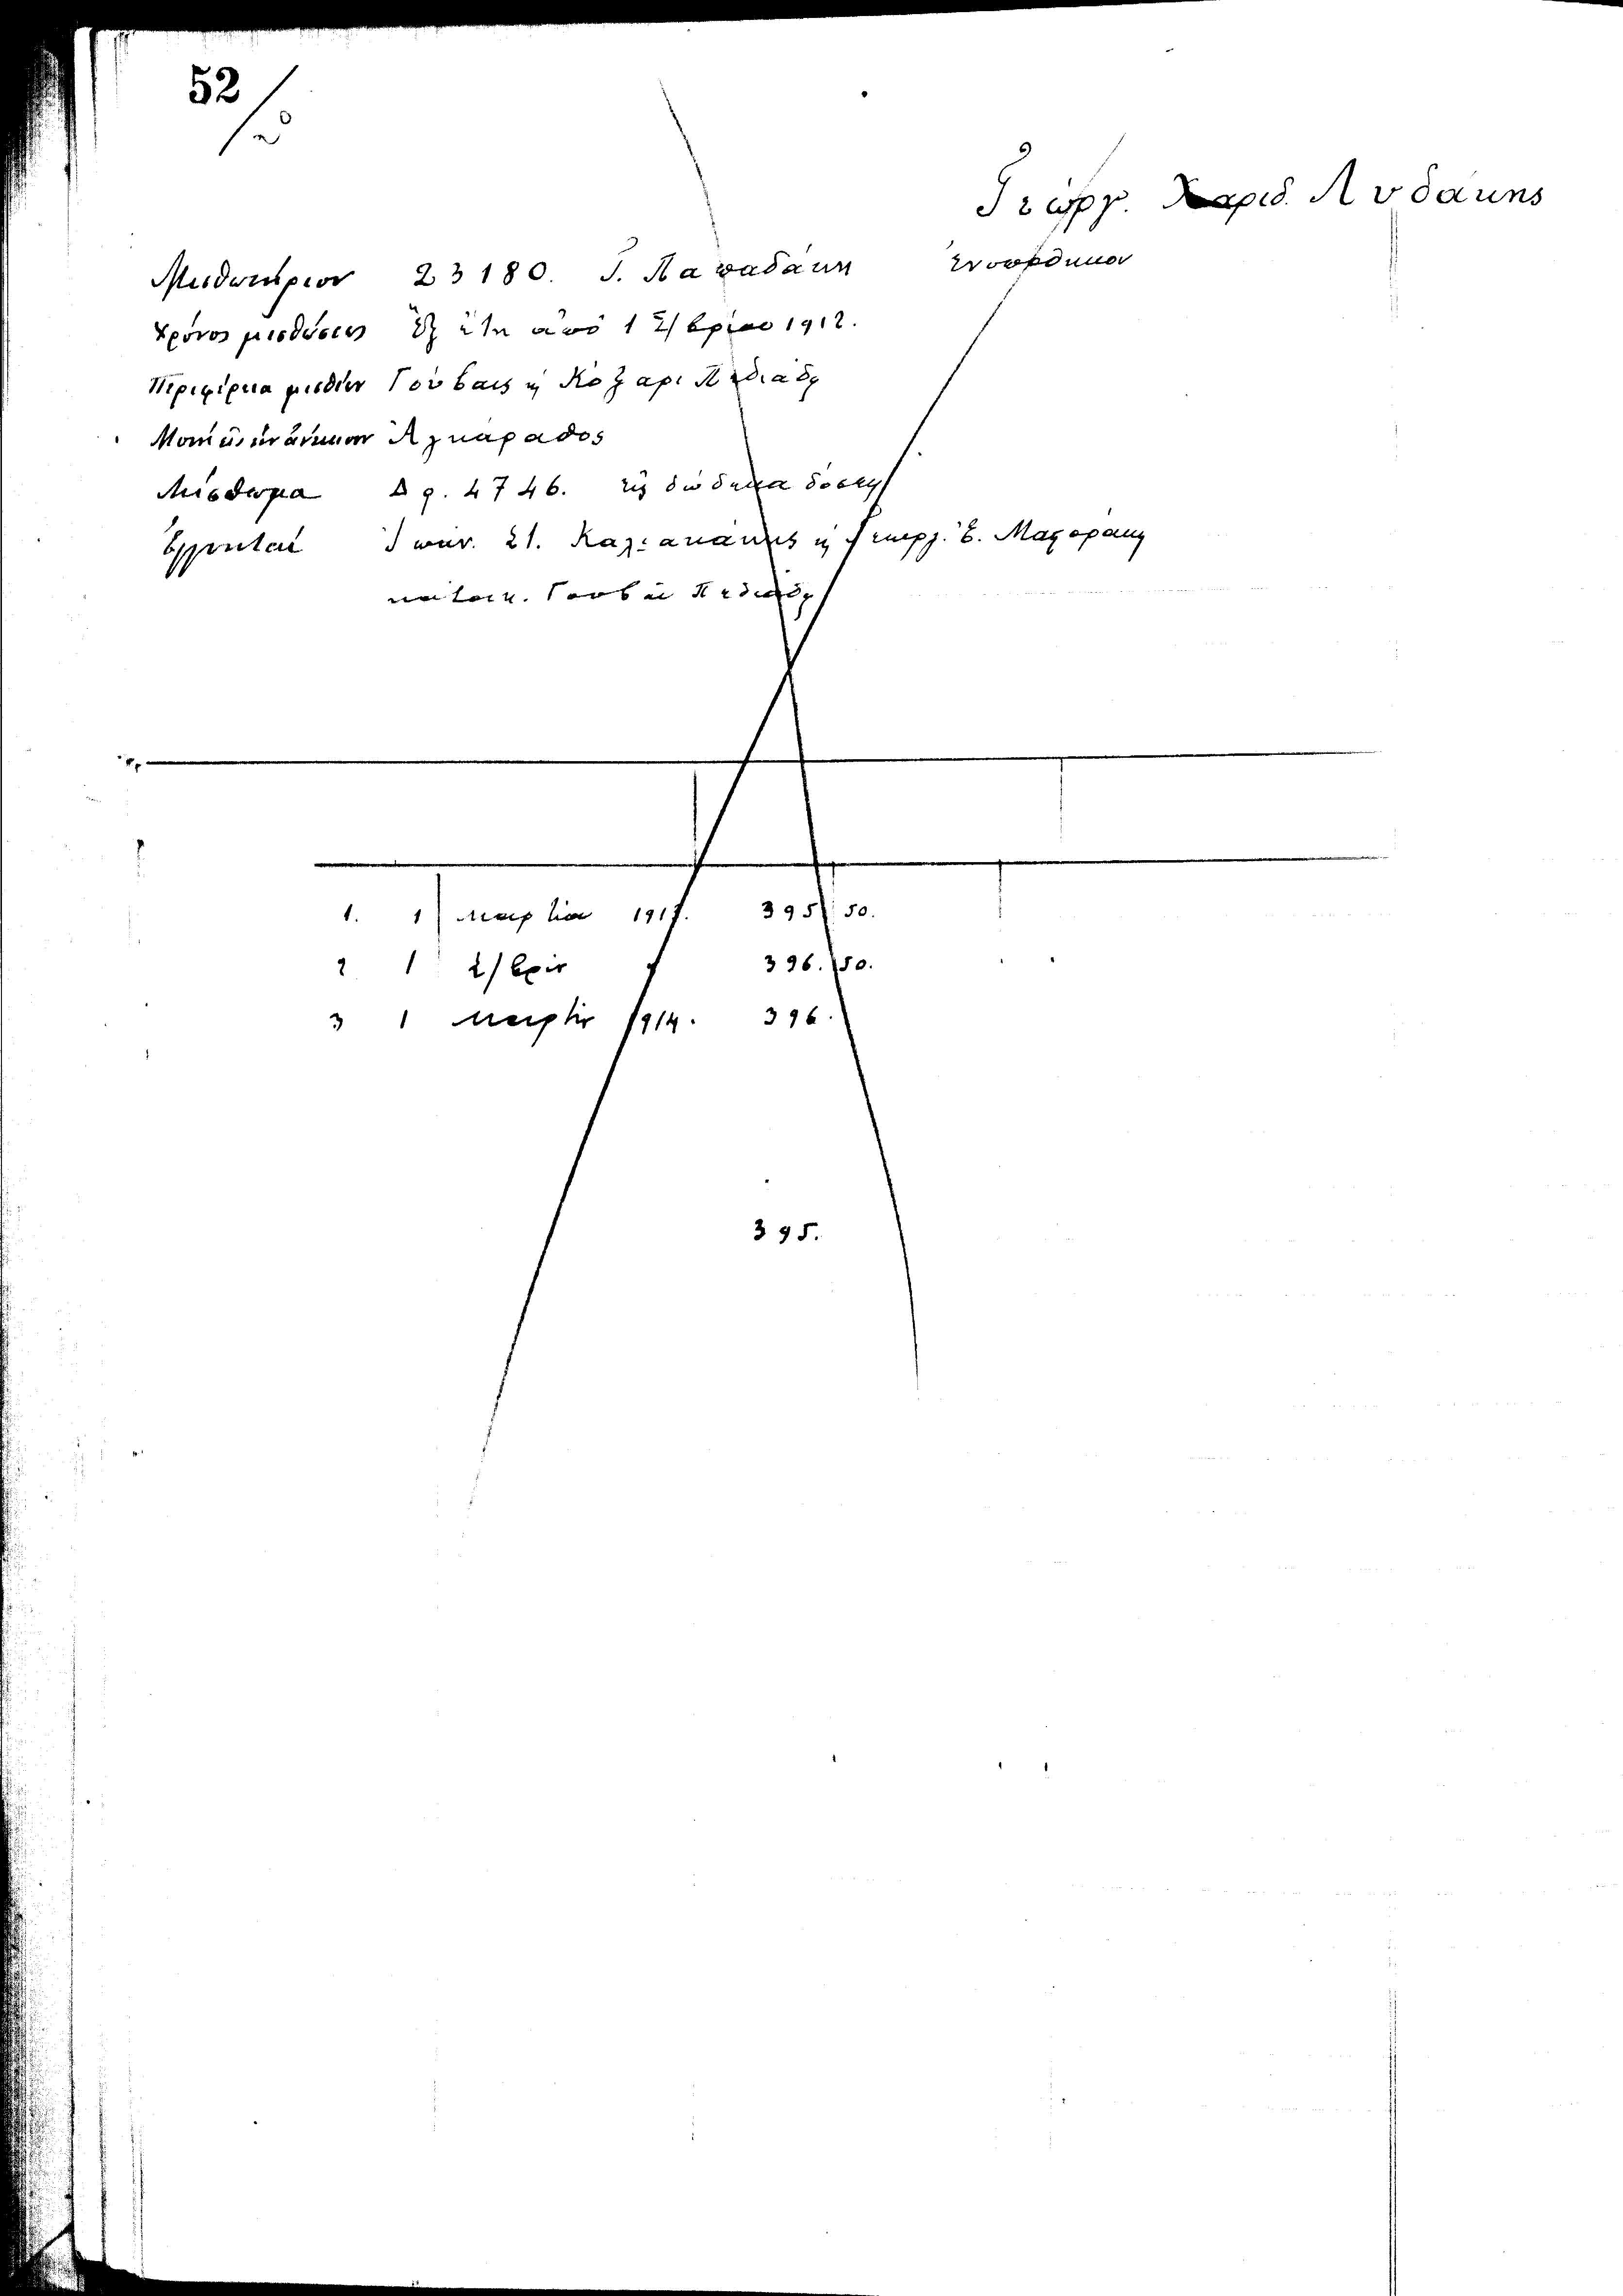 52
Γεώργ. Χαριδ. Λυδάκης
Μισθωτήριον 23180. Γ. Παπαδάκη
Χρόνος μισθώσεως ἓξ ἔτη ἀπό 1 7/βρίου 1912.
Περιφέρεια μισθίων Γούβαις ἢ Κοξαρι Πεδιάδος
Μονὴ εἰς ἣν ἀνήκουν Ἀγκάραθος
Μίσθωμα Δρ. 4746. εἰς δώδεκα δόσεις
Ἐγγυηταί Ἰωάν. Καλ. ἢ Γεώργ. Ἐ.
κάτοικ. Γουβῶν Πεδιάδος
1. 1 Μαρτίου 1913. 395 50.
2 1 7/βρίου " 396. 50.
3 1 Μαρτίου 1914. 396.
395.